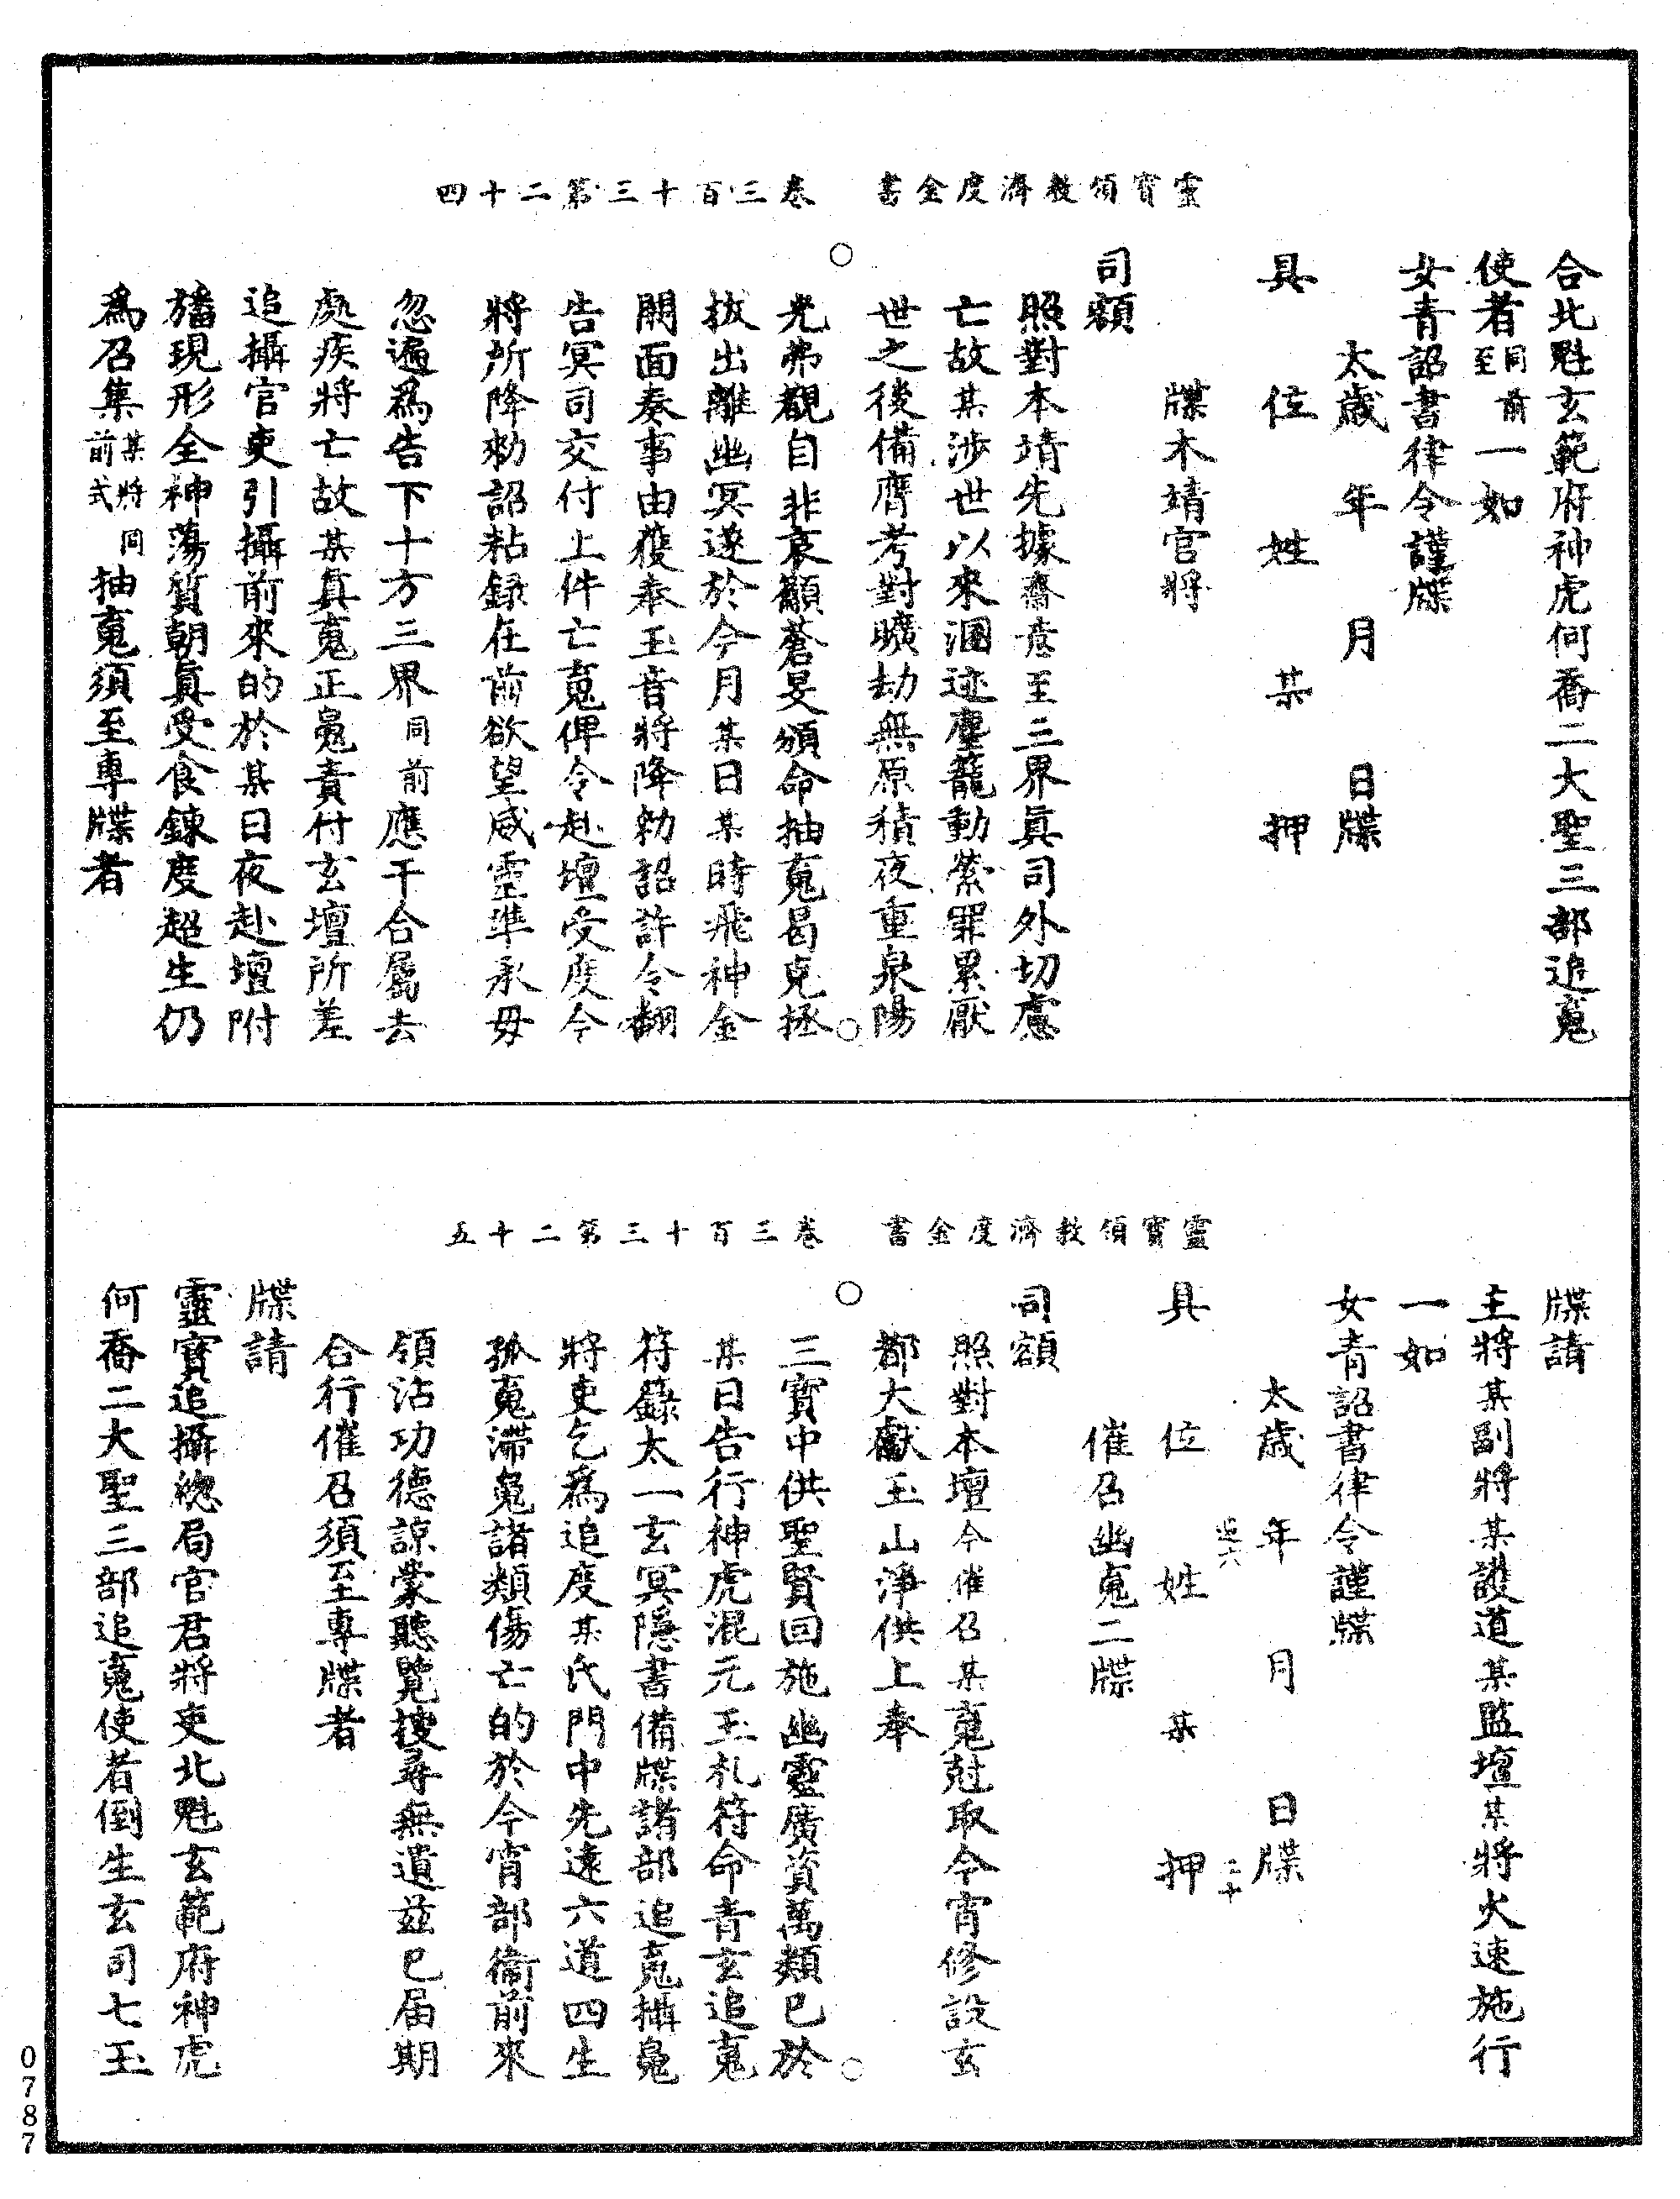 靈寶領教濟度金書　卷三百十三第二十四
合北魁玄範府神虎何喬二大聖三部追䰟
使者同前至前一如
女青詔書律令謹牒
太歲　年　月　日牒
具　位　姓　某　押
牒本靖官將
司額
照對本靖先據齋意至三界眞司外切慮
亡故某涉世以來溷迹塵籠動縈罪累厭
世之後備膺考對曠劫無原積夜重泉陽
光弗覩自非哀籲蒼旻頒命抽䰟曷克拯
拔出離幽冥遂於今月某日某時飛神金
闕面奏事由獲奉玉音將降勑詔許令翻
告冥司交付上件亡䰟俾令赴壇受度今
將所降勑詔粘録在前欲望威靈準承毋
忽遍爲告下十方三界同前應干合屬去
處疾將亡故某眞䰟正魄責付玄壇所差
追攝官吏引攝前來的於某日夜赴壇附
旛現形全神蕩質朝眞受食鍊度超生仍
爲召集某將同前式抽䰟須至專牒者
靈寶領教濟度金書　卷三百十三第二十五
牒請
主將某副將某護道某監壇某將火速施行
一如
女青詔書律令謹牒
太歲　年　月　日牒
具　位　姓　某　押
催召幽䰟二牒
司額
照對本壇今催召某䰟尅取今宵修設玄
都大獻玉山淨供上奉
三寶中供聖賢回施幽靈廣資萬類已於
某日告行神虎混元玉札符命青玄追䰟
符籙太一玄冥隱書備牒諸部追䰟攝魄
將吏乞爲追度某氏門中先遠六道四生
孤䰟滯魄諸類傷亡的於今宵部衞前來
領沾功德諒蒙聽覽搜尋無遺兹已届期
合行催召須至專牒者
牒請
靈寶追攝緫局官君將吏北魁玄範府神虎
何喬二大聖三部追䰟使者倒生玄司七玉
0787